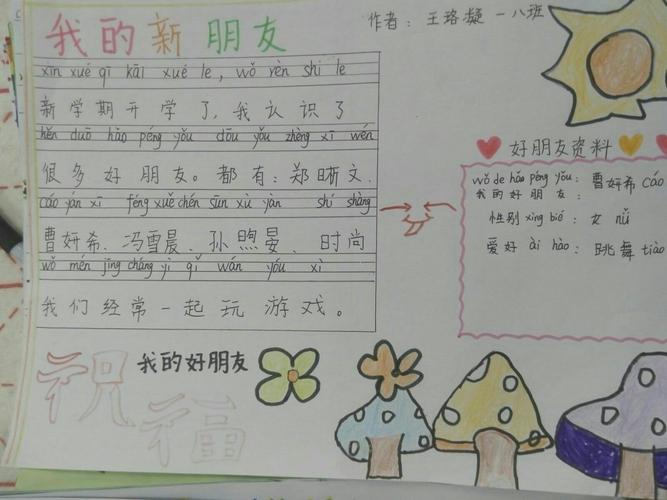 我的新朋友
作者：王珞凝 一八班
xīn xué qī kāi xué le, wǒ rèn shi le
新学期开学了,我认识了
hěn duō hǎo péng yǒu dōu yǒu zhèng xī wén
很多好朋友。都有:郑晰文.
cáo yán xī féng xuě chén sūn xù yàn shí shàng
曹妍希.冯雪晨.孙煦晏.时尚
wǒ mén jīng cháng yì qǐ wán yóu xì
我们经常一起玩游戏。
好朋友资料
wǒ de hǎo péng yǒu: 曹妍希 cáo
我的好朋友:
性别 xìng bié: 女 nǚ
爱好 ài hào: 跳舞 tiào
祝福
我的好朋友